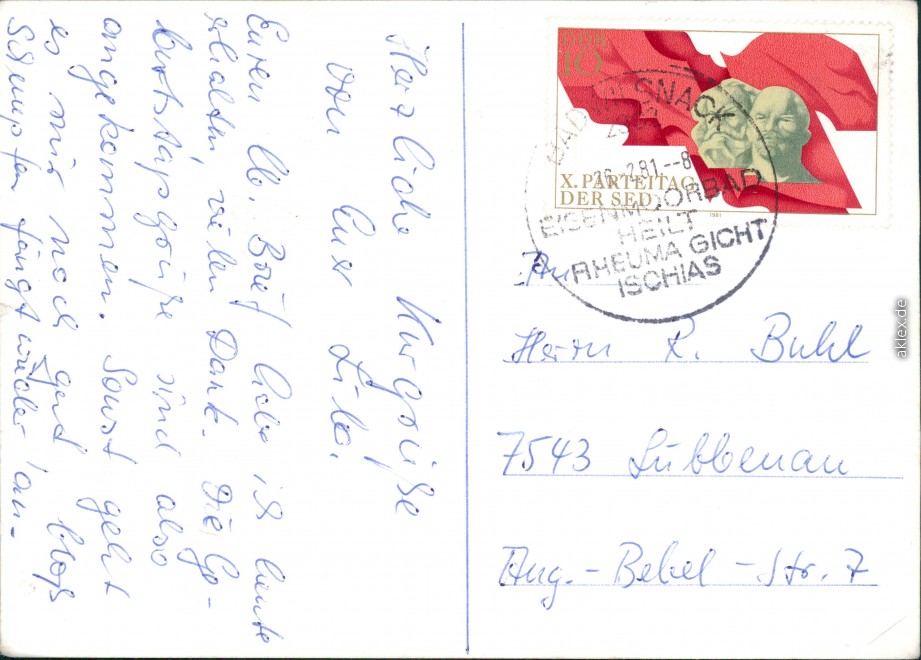 Herzliche Kurgrüße
von Eurer Lilo.
Euren lb. Brief habe ich heute
erhalten, vielen Dank. Die Ge-
burtstagsgrüße sind also
angekommen. Sonst geht
es mir noch gut, bloß
Schnupfen fängt wieder an.
DDR
10
X. PARTEITAG
DER SED
1981
BAD WILSNACK
26. 2.81.--8
EISENMOORBAD
HEILT
RHEUMA GICHT
ISCHIAS
An
Herrn R. Buhl
7543 Lübbenau
Aug.-Bebel-Str. 7
aklex.de